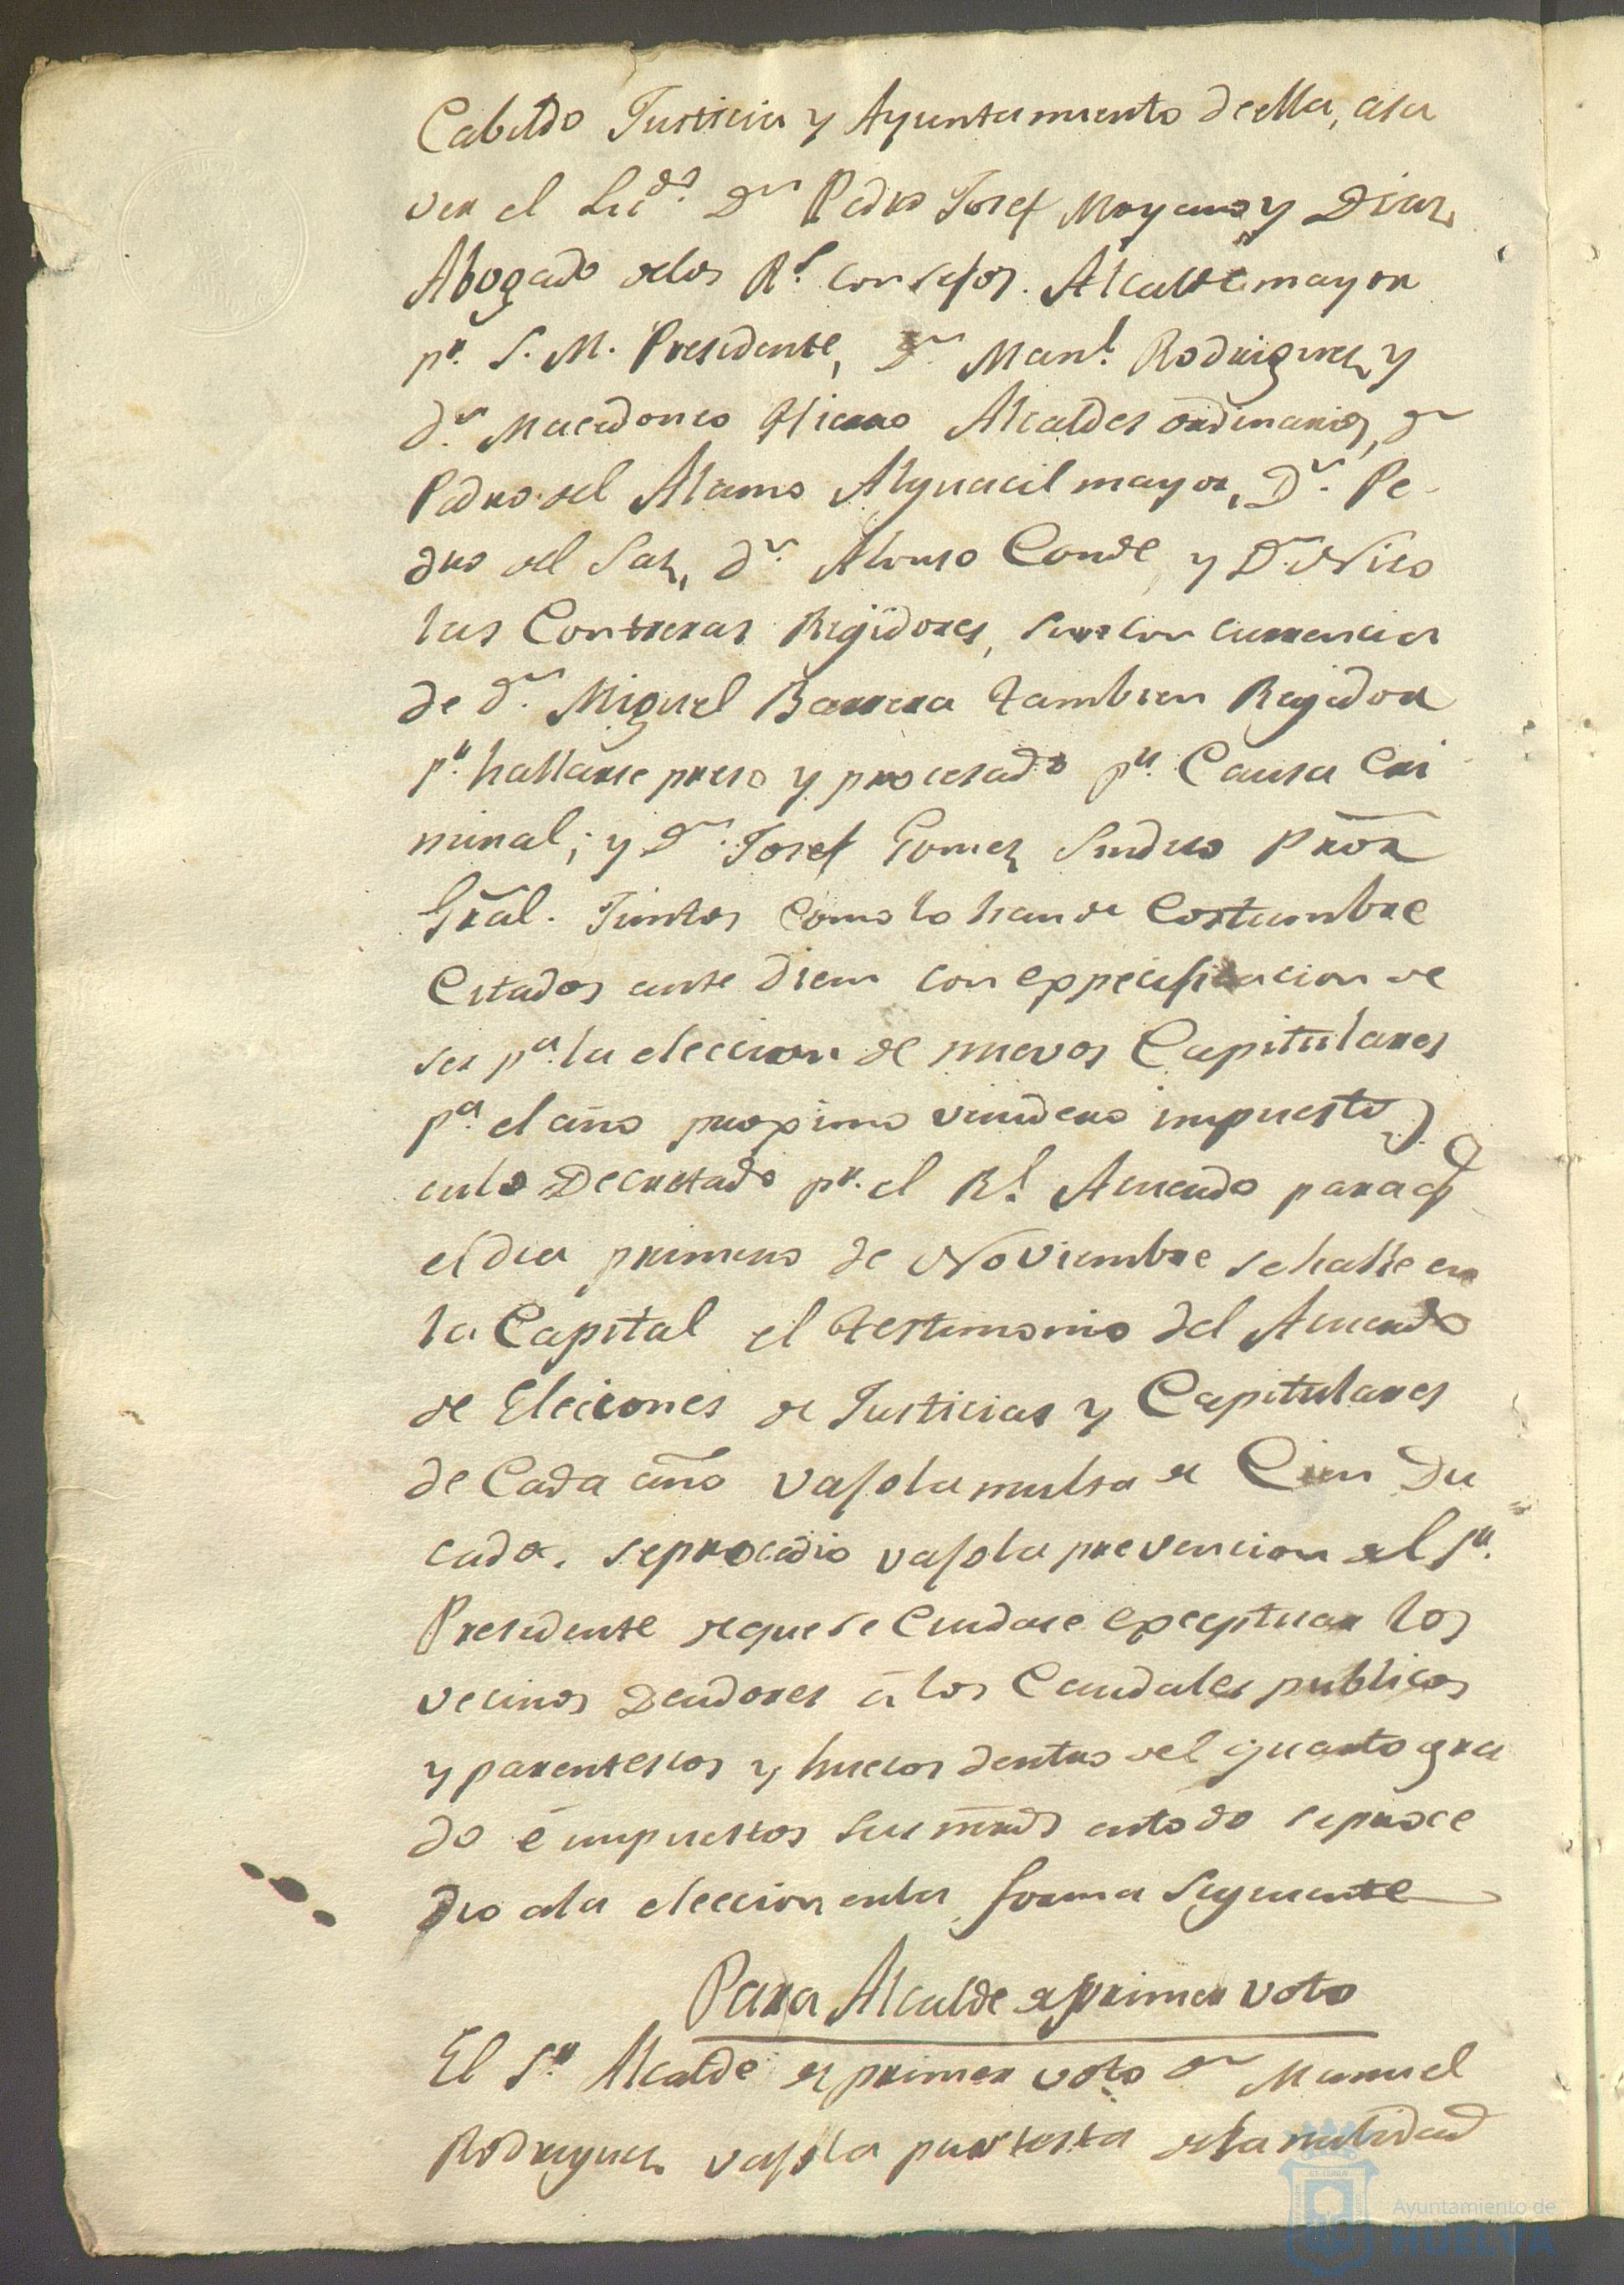 Cabildo Justicia y Ayuntamiento de ella, asa
ver el Licdo. Dn Pedro Josef Moyano y Diaz
Abogado delos Rs. consejos. Alcalde mayor
pr. S. M. Presidente, Dn Manl. Rodriguez y
dn Macedonio Hierro Alcaldes ordinarios, dn
Pedro del Alamo Alguacil mayor, Dn. Pe-
dro del Saz, dn. Alonso Conde y Dn. Nico
las Contreras Regidores, sin concurrencia
de dn. Miguel Barrera tambien Regidor
pr. hallarse preso y procesado pr. Causa Cri
minal; y Dn. Josef Gomez Sindico Pror
Gral. Juntos como lo han de costumbre
Citados ante diem con expecificacion de
ser pa. la eleccion de nuevos Capitulares
pa. el año proximo venidero impuestos
enlo Decretado pr. el Rl. Acuerdo para q
el dia primero de Noviembre se halle en
la Capital el testimonio del Acuerdo
de Elecciones de Justicias y Capitulares
de Cada año vajo la multa de Cien Du
cados. se procedio vajo la prevencion del Sr.
Presidente de que se Cuidase exceptuar los
vecinos Deudores á los Caudales publicos
y parentescos y huecos dentro del quarto gra
do é impuestos sus mrds en todo se proce
dio ala eleccion enla forma siguiente
Para Alcalde de primer voto
El Sr. Alcalde de primer voto dn Manuel
Rodriguez vajo la protexta dela nulidad
Ayuntamiento de
HUELVA